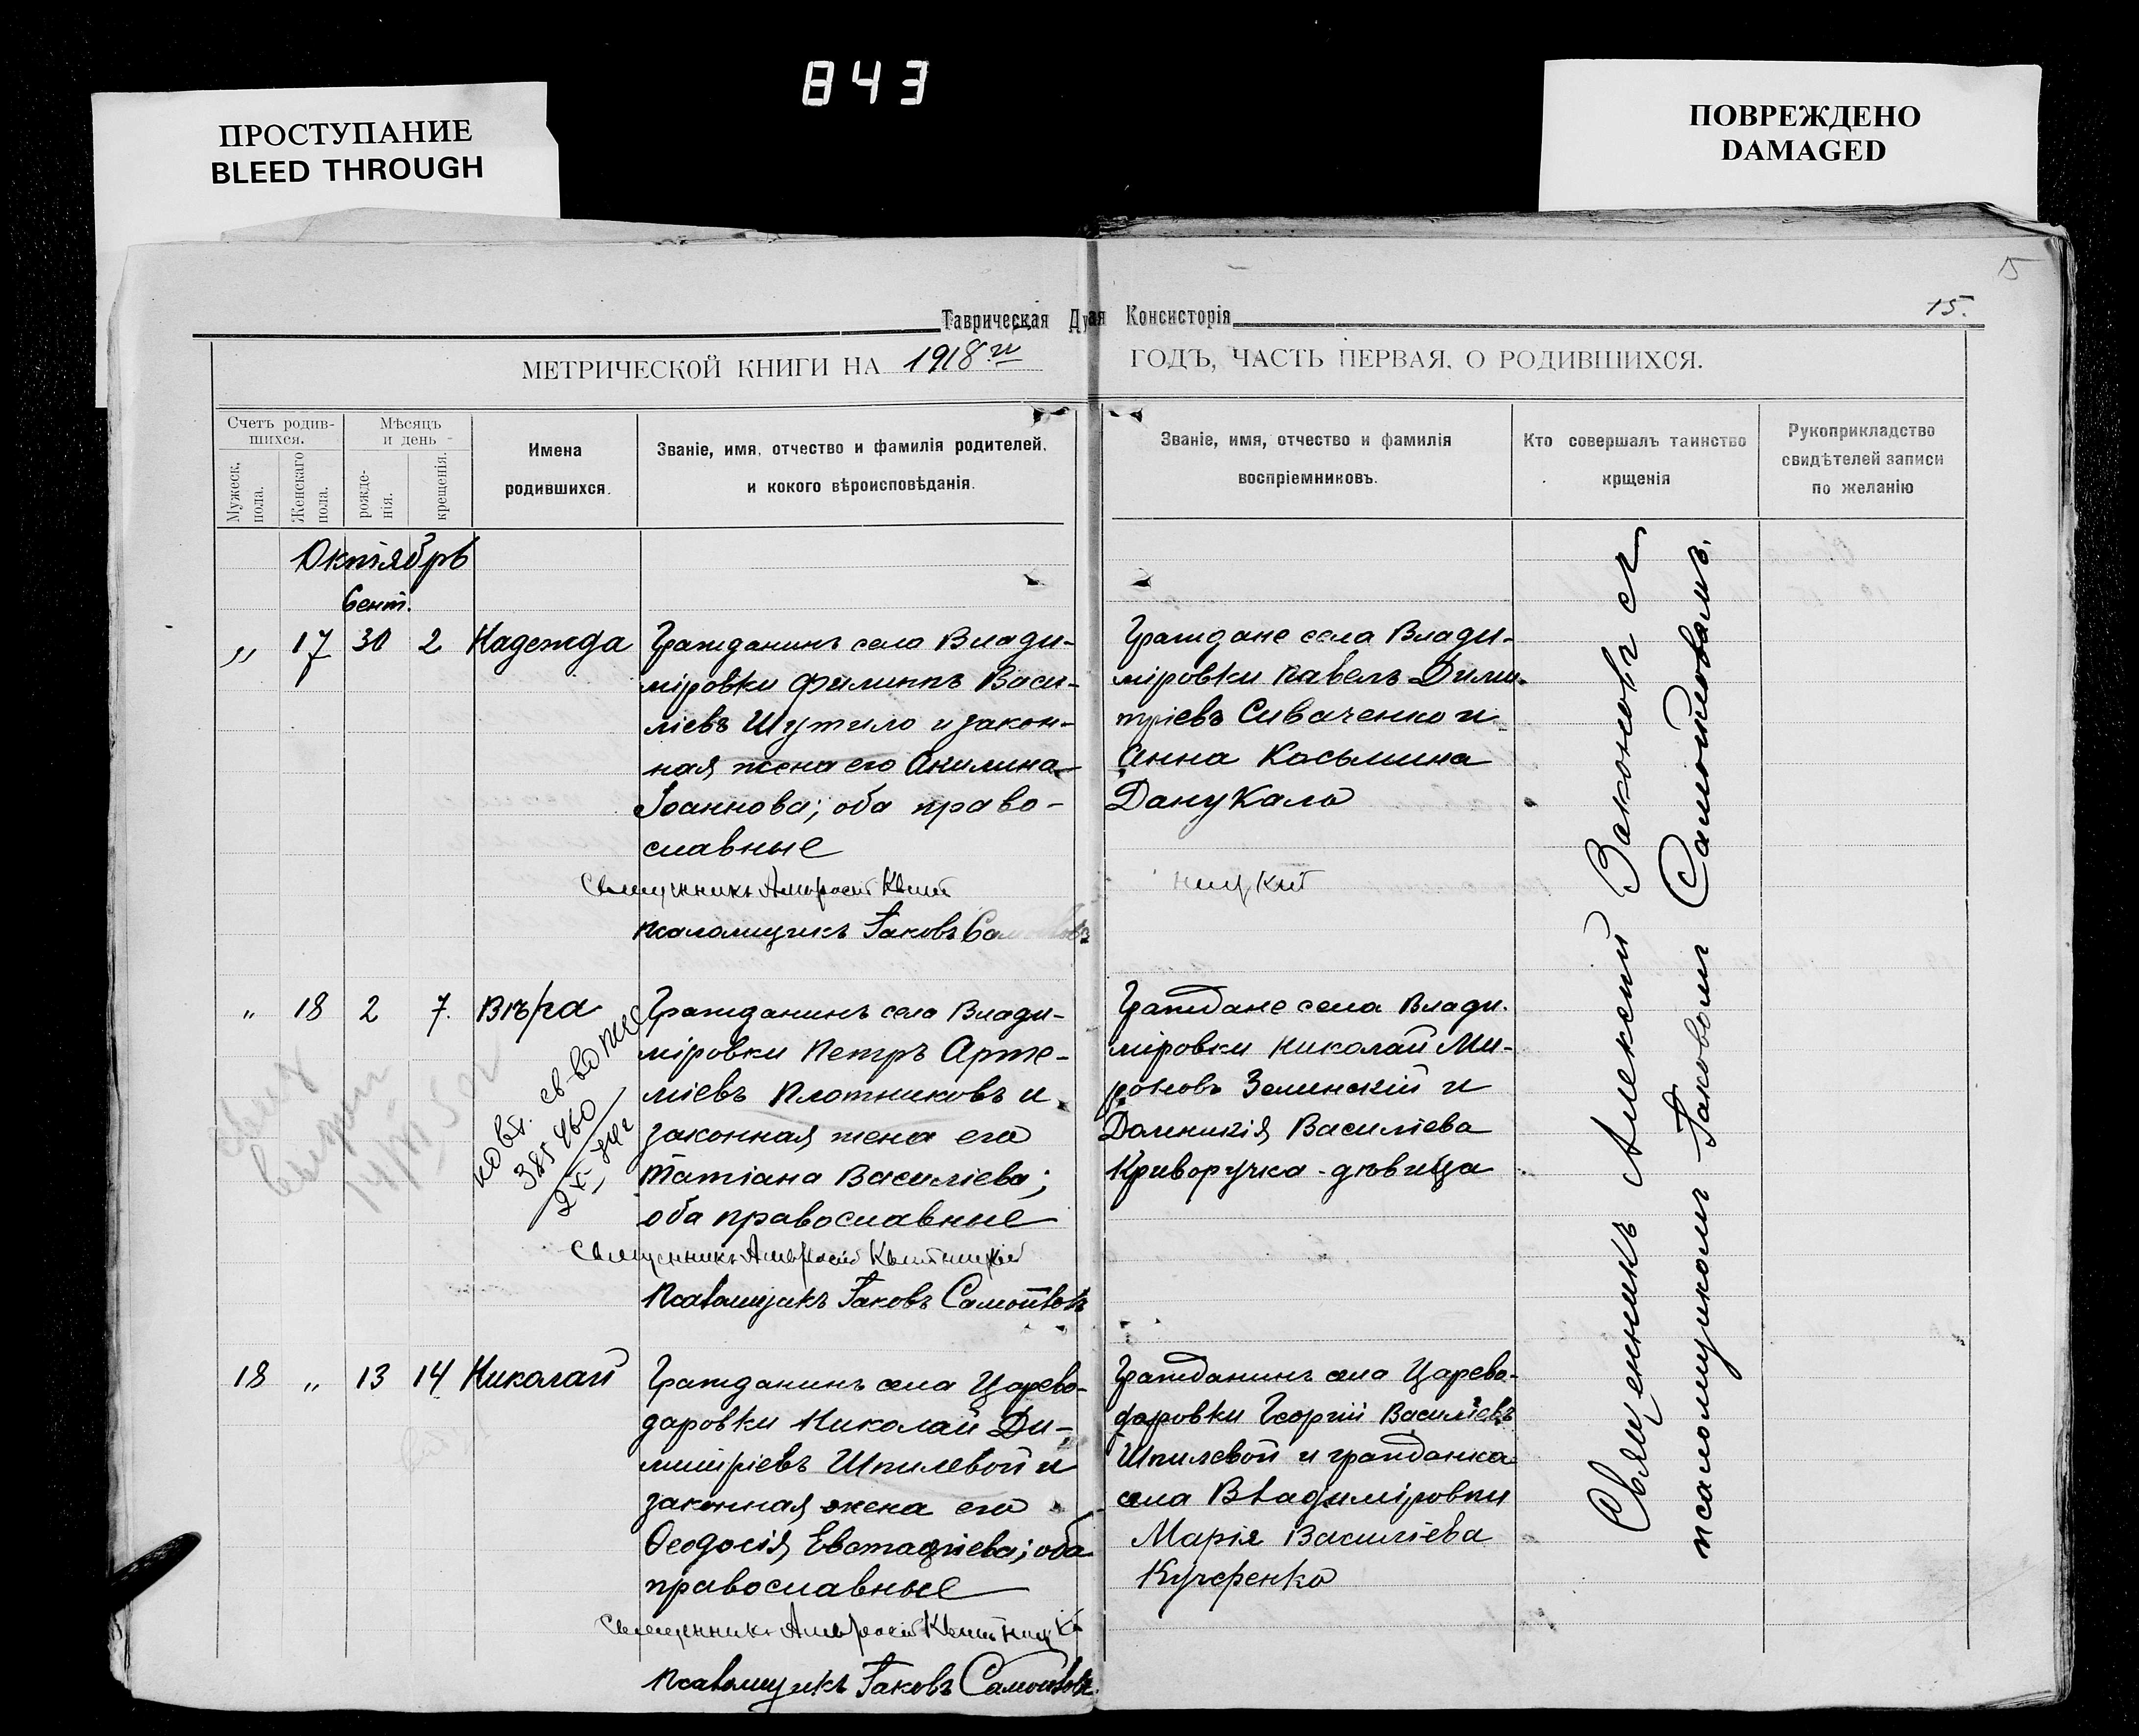 843
ПРОСТУПАНИЕ
BLEED THROUGH
ПОВРЕЖДЕНО
DAMAGED
15
15.
Таврическая Д ая Консисторія
МЕТРИЧЕСКОЙ КНИГИ НА 1918 й ГОДЪ, ЧАСТЬ ПЕРВАЯ, О РОДИВШИХСЯ.
Счетъ родив-
шихся.
Мужеск.
пола.
Женскаго
пола.
Мѣсяцъ
и день
рожде-
нія.
крещенія.
Имена
родившихся.
Званіе, имя, отчество и фамилія родителей,
и кокого вѣроисповѣданія.
Званіе, имя, отчество и фамилія
воспріемниковъ.
Кто совершалъ таинство
крщенія
Рукоприкладство
свидѣтелей записи
по желанію
Октябрь
Сент.
„ 17 30 2 Надежда
Гражданинъ села Влади-
міровки Филиппъ Васи-
ліевъ Шутило и закон-
ная жена его Акилина
Іоаннова; оба право-
славные
Священникъ Амвросій Квит
псаломщикъ Іаковъ Сам
Граждане села Влади-
міровки Павелъ Дими-
тріевъ Сиваченко и
Анна Косьмина
Данукало
ницкій
„ 18 2 7. Вѣра
Гражданинъ села Влади-
міровки Петръ Арте-
міевъ Плотниковъ и
законная жена его
Татіана Василіева;
оба православные
Священникъ Амвросій Квитницкій
Псаломщикъ Іаковъ Самойловъ
повт. св-во
385460
Граждане села Влади-
міровки Николай Ми-
роновъ Зелинскій и
Домникія Василіева
Криворучка - дѣвица
18 „ 13 14 Николай
Гражданинъ села Царево-
даровки Николай Ди-
митріевъ Шпилевой и
законная жена его
Ѳеодосія Евстафіева; оба
православные
Священникъ Амвросій Квитницкі
Псаломщикъ Іаковъ Самойловъ.
Гражданинъ села Царево-
даровки Георгій Василіевъ
Шпилевой и гражданка
села Владиміровки
Марія Василіева
Кучеренко
Священникъ Алексій Законовъ съ
псаломщикомъ Іаковомъ Самойловымъ.